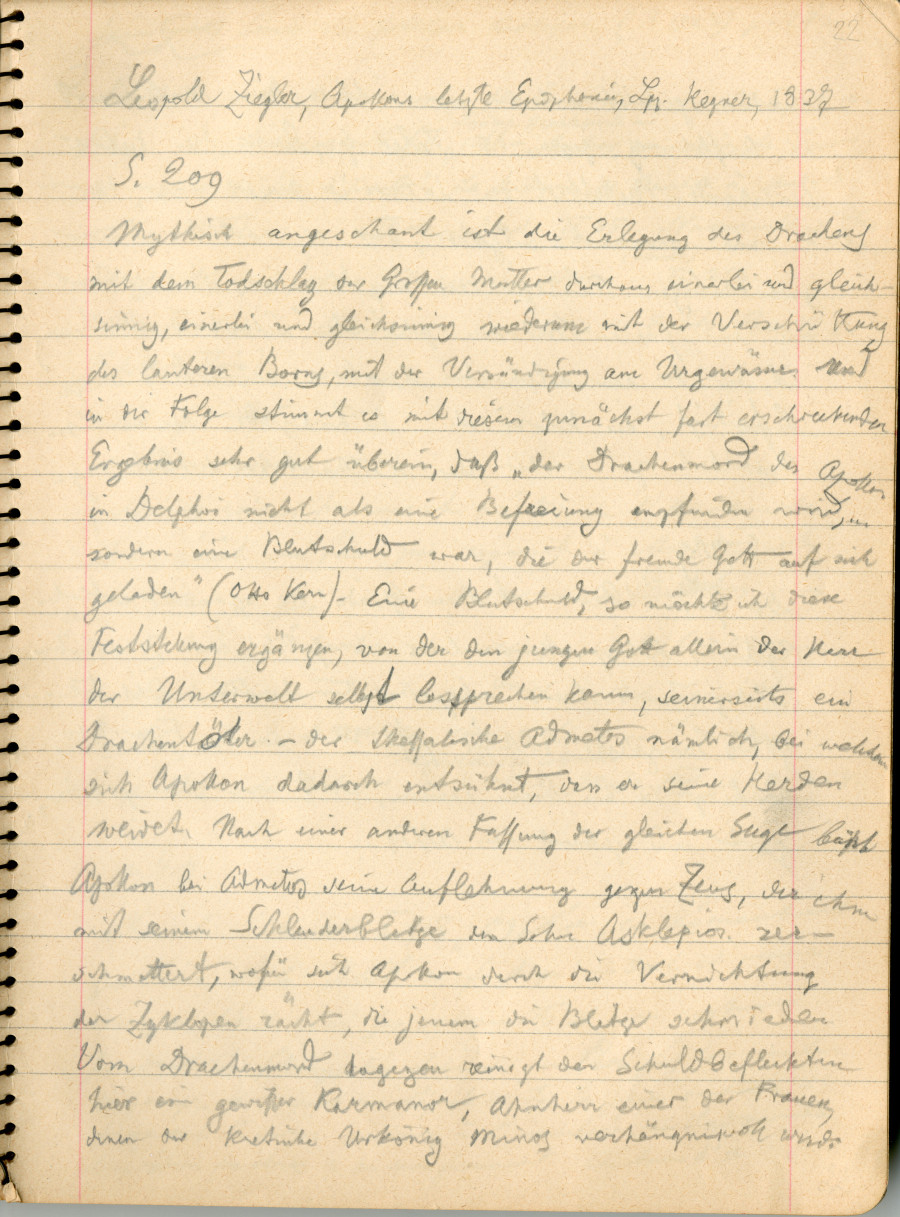 22
Leopold Ziegler, Apollons letzte Epiphanie, Lpz. Hegner, 1937
S. 209
Mythisch angeschaut ist die Erlegung des Drachens
mit dem Todschlag der Großen Mutter durchaus einerlei und gleich-
sinnig, einerlei und gleichsinnig wiederum mit der Verschüttung
des lauteren Borns, mit der Versündigung am Urgewässer. Und
in der Folge stimmt es mit diesem zunächst fast erschreckenden
Ergebnis sehr gut überein, daß „der Drachenmord des Apollon
in Delphoi nicht als eine Befreiung empfunden wird, ...
sondern eine Blutschuld war, die der fremde Gott auf sich
geladen" (Otto Kern). Eine Blutschuld, so möchte ich diese
Feststellung ergänzen, von der den jungen Gott allein der Herr
der Unterwelt selbst lossprechen kann, seinerseits ein
Drachentöter – der thessalische Admetos nämlich, bei welchem
sich Apollon dadurch entsühnt, dass er seine Herden
weidet. Nach einer anderen Fassung der gleichen Sage büßt
Apollon bei Admetos seine Auflehnung gegen Zeus, der ihm
mit seinem Schleuderblitze den Sohn Asklepios zer-
schmettert, wofür sich Apollon durch die Vernichtung
der Zyklopen rächt, die jenem die Blitze schmieden
Vom Drachenmord dagegen reinigt den Schuldbefleckten
hier ein gewisser Karmanor, Ahnherr einer der Frauen,
denen der kretische Urkönig Minos verhängnisvoll wurde